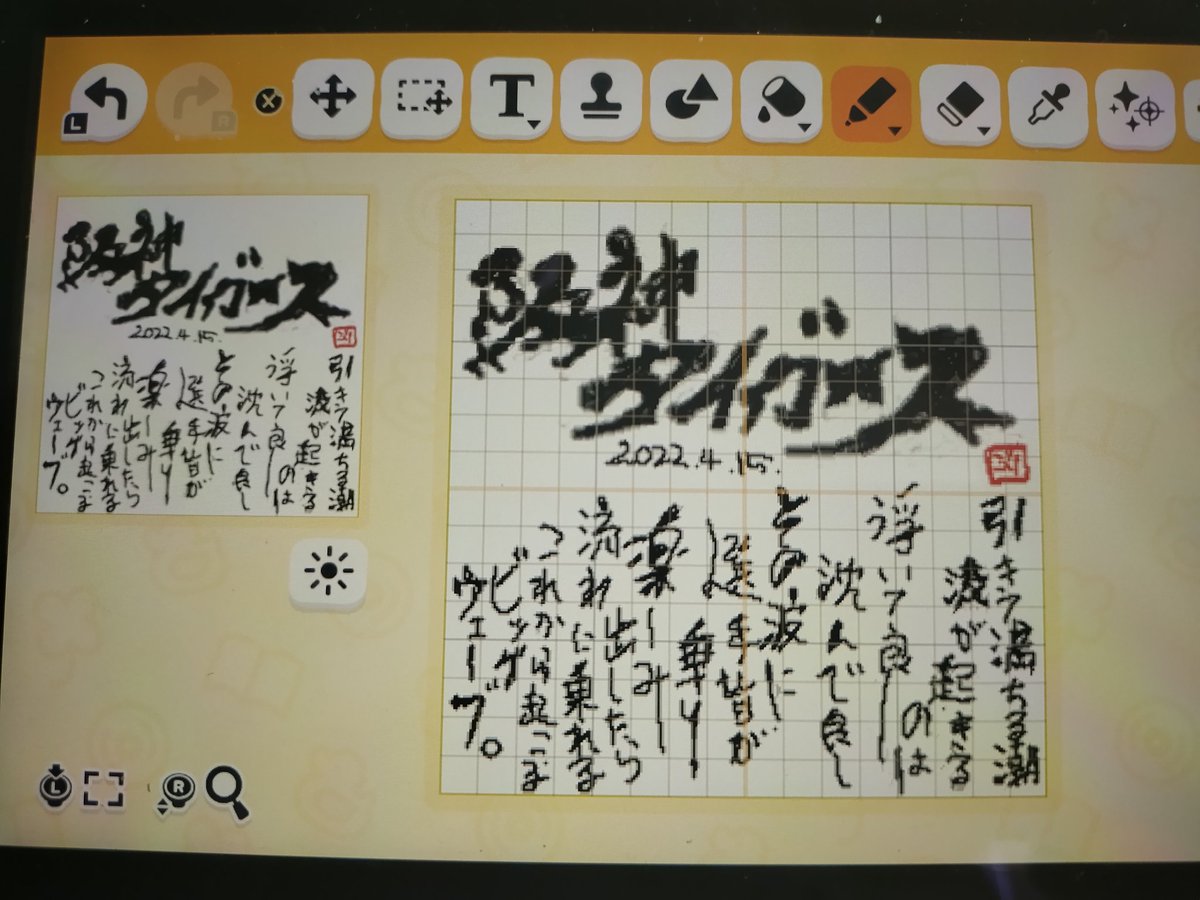 L
R
X
T
阪神
タイガース
2022.4.15.
引きて満ちる潮
波が起きる
のは
浮いて良し
沈んで良し
どの波に
選手皆が
乗り
楽しみ
出したら
流れに乗れる
これから起こす
ビッグ
ウェーブ。
阪神
タイガース
2022.4.15.
引きて満ちる潮
波が起きる
のは
浮いて良し
沈んで良し
どの波に
選手皆が
乗り
楽しみ
出したら
流れに乗れる
これから起こす
ビッグ
ウェーブ。
L
R